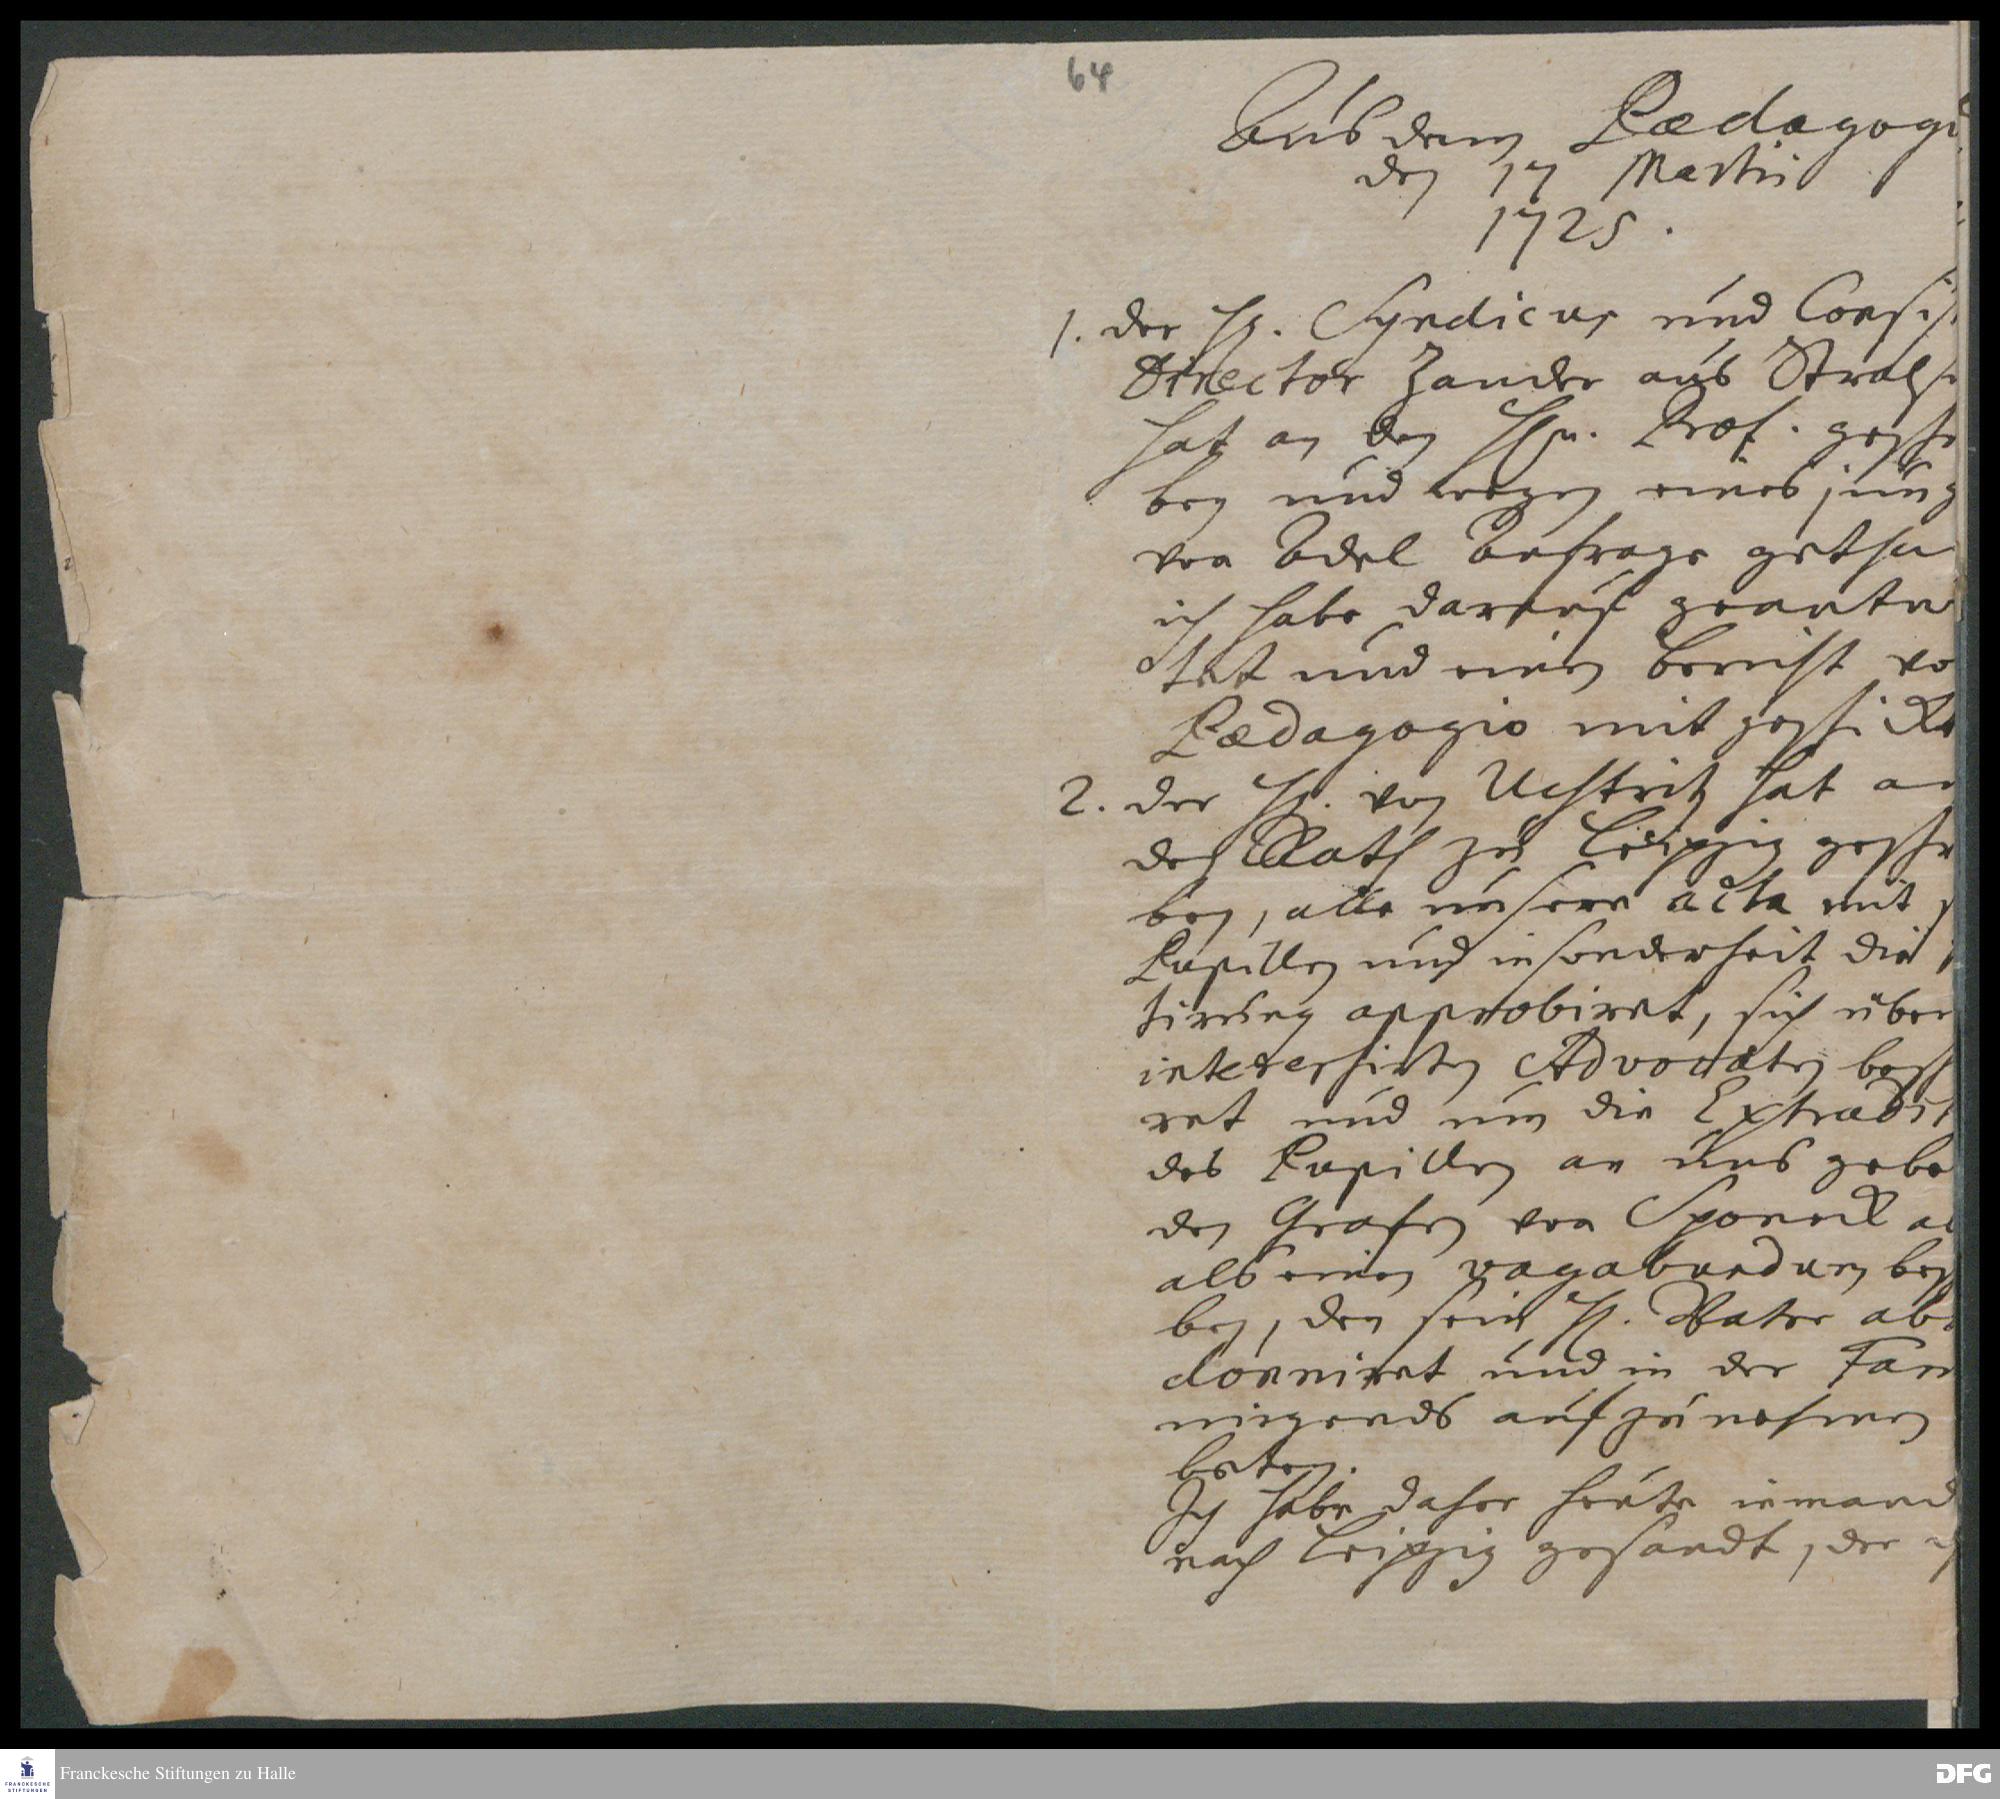 64
Aus dem Pædagogi
den 17 Martii
1725.
1. der H. Syndicus und Consist
Director Zander aus Strals
hat an den Hrn. Prof. geschr
ben und wegen eines jung
von Adel Anfrage gethan
ich habe darauf geantw
tet und einen bericht vo
Pædagogio mit geschickt
2. der H. von Uchtritz hat an
den Rath zu Leipzig geschr
ben, alle unsere acta mit
Pupillen und insonderheit die
tirung approbiret, sich über
interessirten Advocaten besch
ret und um die Extradit
des Pupillen an uns gebe
den Grafen von Sponeck al
als einen vagabundum besch
ben, den sein H. Vater ab
donniret und in der Fam
nirgends aufzunehmen
beten.
Ich habe daher heute iemand
nach Leipzig gesandt, der
Franckesche Stiftungen zu Halle
FRANCKESCHE
STIFTUNGEN
DFG